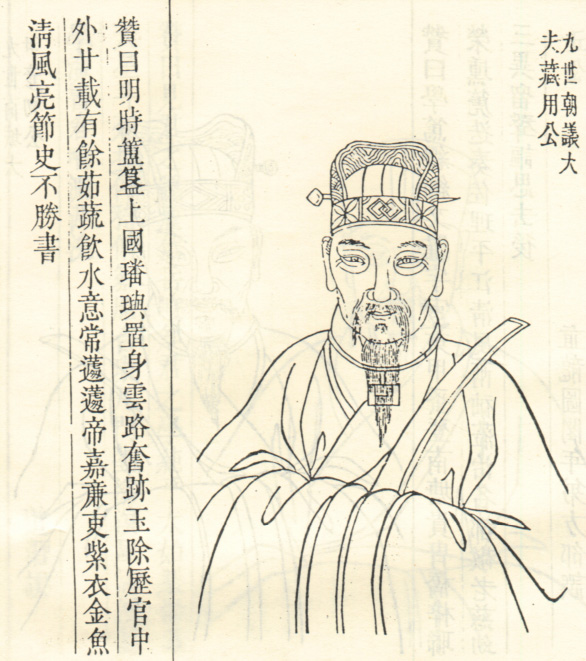 九世朝議大
夫藏用公
贊曰明時簠簋上國璠璵置身雲路奮跡玉除歷官中
外廿載有餘茹蔬飲水意常蘧蘧帝嘉廉吏紫衣金魚
清風亮節史不勝書